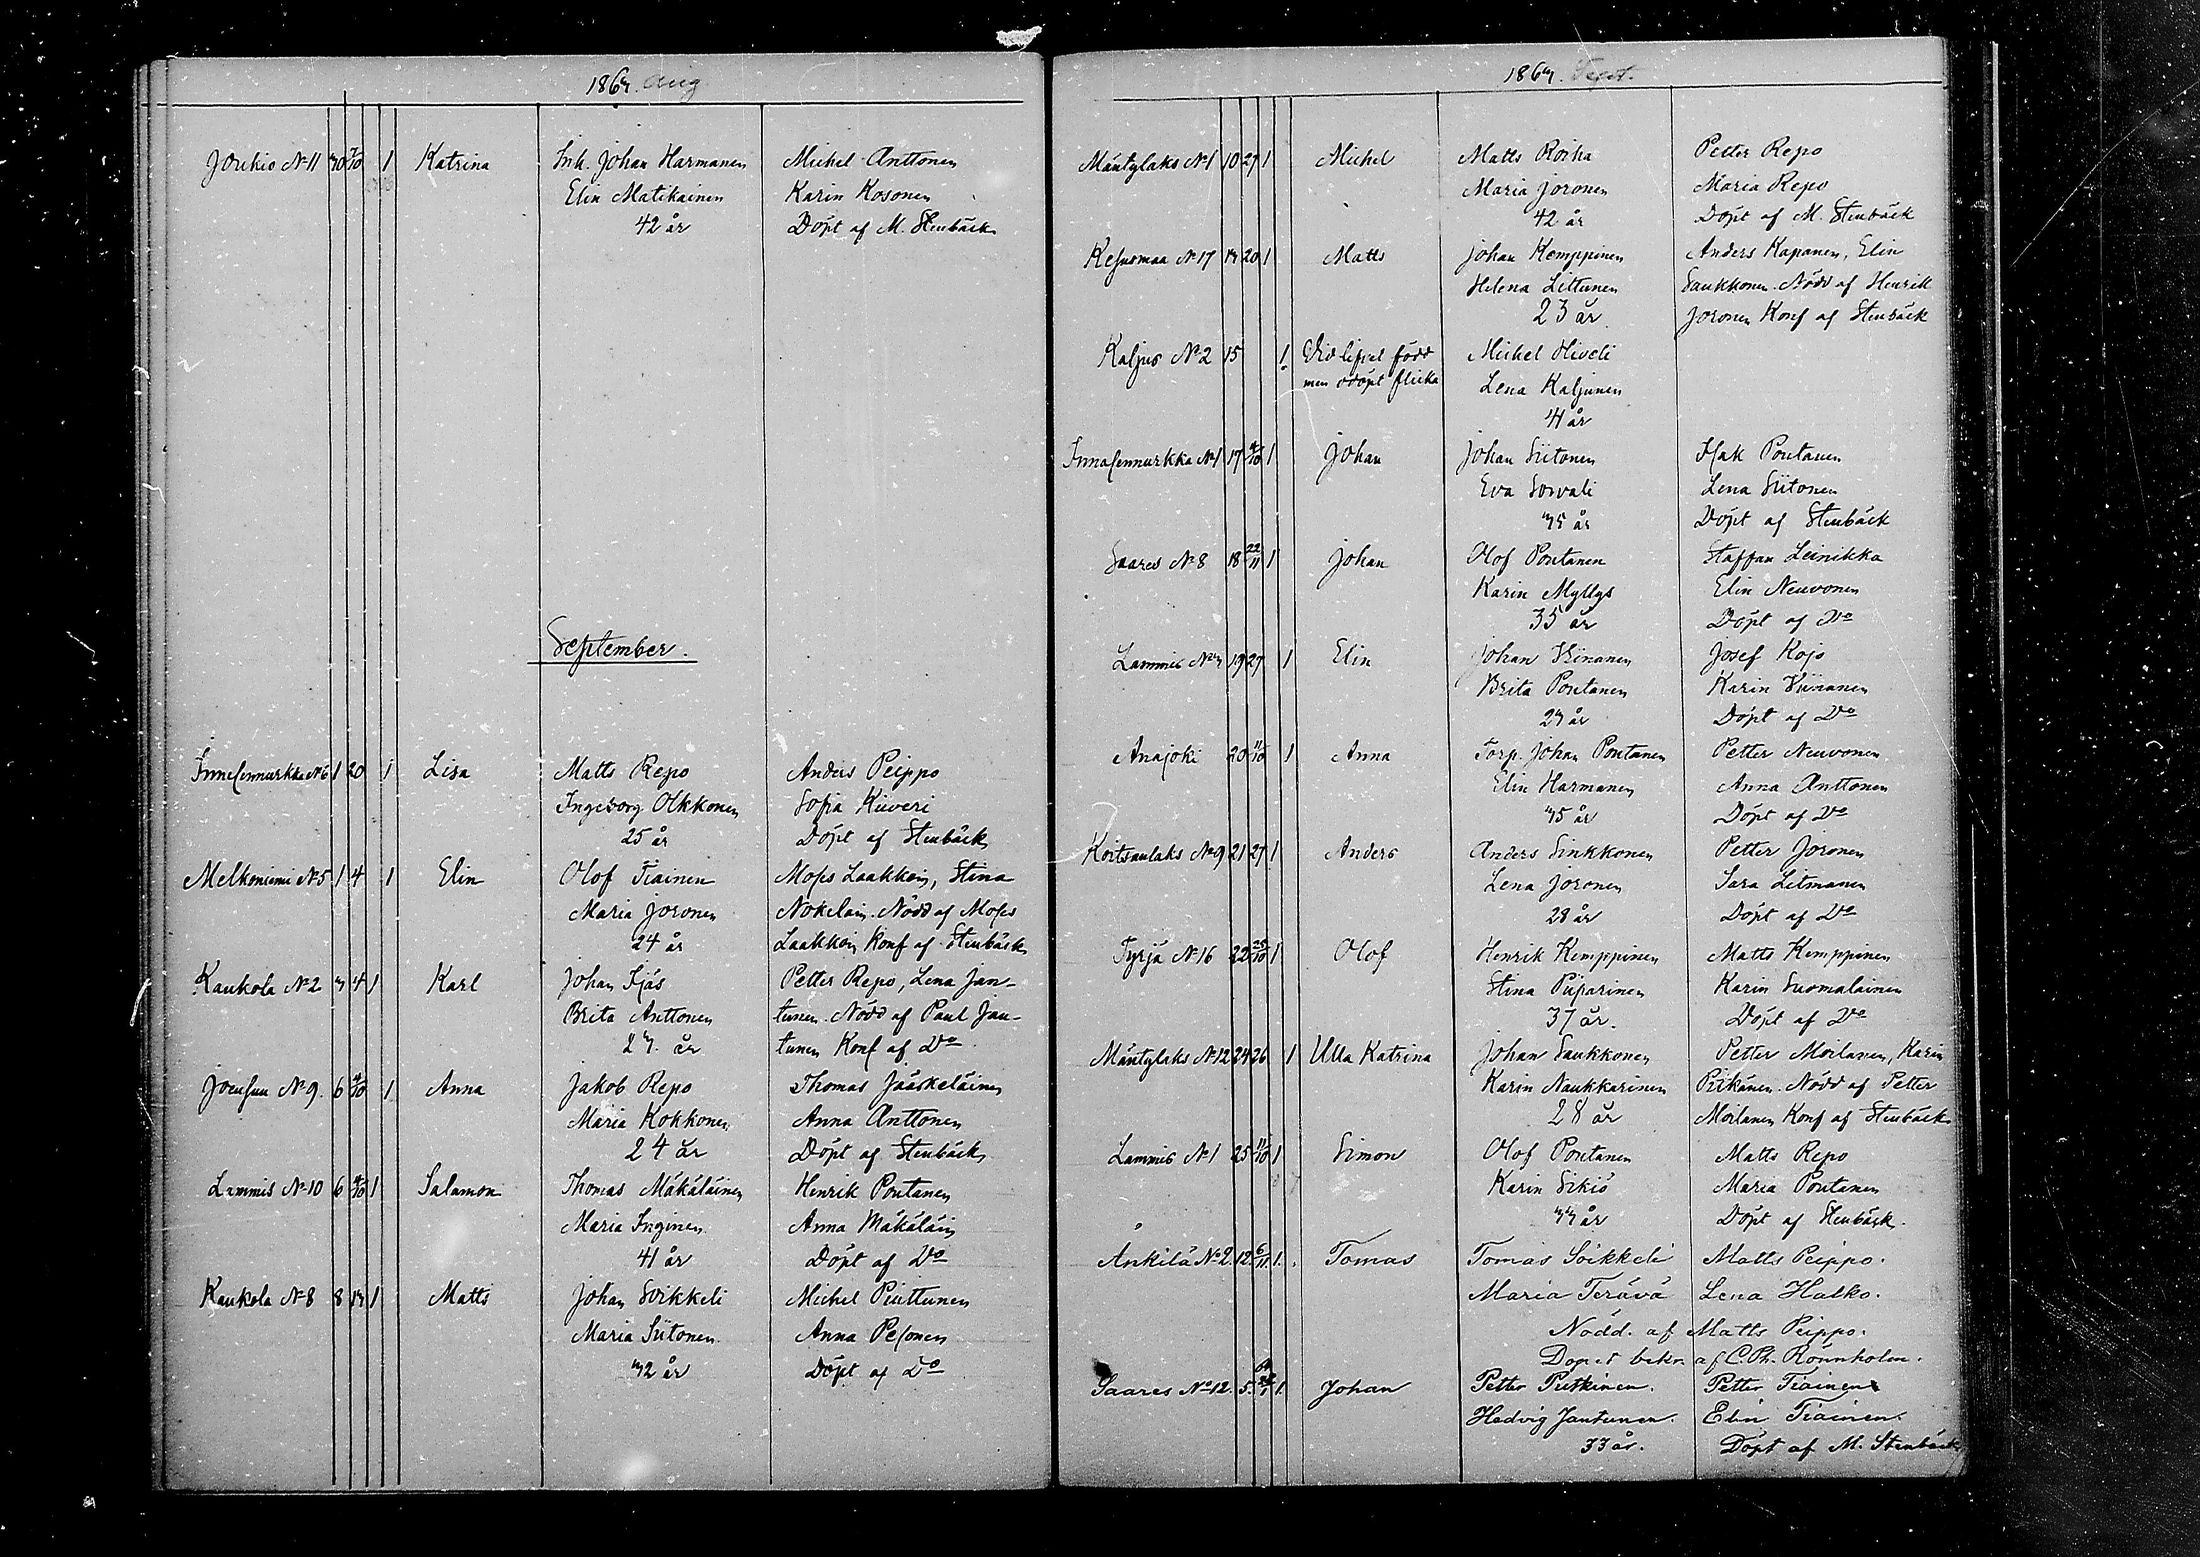 1863. Aug
Joukio No 11 30 7/10 1 Katrina Inh. Johan Harmanen Michel Anttonen
Elin Matikainen Karin Kosonen
42 år Döpt af M. Stenbäck
September.
No 6 1 20 1 Lisa Matts Repo Anders Peippo
Ingeborg Olkkonen Sofia Kiiveri
25 år Döpt af Stenbäck
Melkoniemi No 5 1 4 1 Elin Olof Tiainen Moses Laakkoin, Stina
Maria Joronen Nokelain. Nödd af Moses
24 år Laakkoin Konf af Stenbäck
Kaukola No 2 3 4 1 Karl Johan Fjäs Petter Repo, Lena Jan-
Brita Anttonen tunen. Nödd af Paul Jan-
23 år tunen Konf af Do
No 9 6 4/10 1 Anna Jakob Repo Thomas Jääskeläinen
Maria Kokkonen Anna Anttonen
24 år Döpt af Stenbäck
Lammis No 10 6 4/10 1 Salamon Thomas Mäkäläinen Henrik Pontanen
Maria Inginen Anna Mäkäläin
41 år Döpt af Do
Kaukola No 8 8 13 1 Matts Johan Soikkeli Michel Piuttunen
Maria Siitonen Anna Pesonen
32 år Döpt af Do
1863. Sept.
Mäntylaks No 1 10 27 1 Michel Matts Roiha Petter Repo
Maria Joronen Maria Repo
42 år Döpt af M. Stenbäck
Kesusmaa No 17 13 20 1 Matts Johan Kemppinen Anders Kapanen, Elin
Helena Littunen Saukkonen. Nödd af Henrik
23 år Joronen Konf af Stenbäck
Kaljus No 2 15 1 Vid lifvet född Michel Hiveli
men odöpt flicka Lena Kaljunen
41 år
No 1 17 4/10 1 Johan Johan Siitonen Isak Pontanen
Eva Sorvali Lena Siitonen
35 år Döpt af Stenbäck
Saares No 8 18 22/11 1 Johan Olof Pontanen Staffan Leinikka
Karin Myllys Elin Neuvonen
35 år Döpt af Do
Lammis No 3 19 27 1 Elin Johan Viinanen Josef Kojo
Brita Pontanen Karin Viinanen
23 år Döpt af Do
Anajoki 20 11/10 1 Anna Torp. Johan Pontanen Petter Neuvonen
Elin Harmanen Anna Anttonen
35 år Döpt af Do
Koitsanlaks No 9 21 27 1 Anders Anders Sinkkonen Petter Joronen
Lena Joronen Sara Litmanen
28 år Döpt af Do
Tyrjä No 16 22 25/10 1 Olof Henrik Kemppinen Matts Kemppinen
Stina Piiparinen Karin Suomalainen
37 år. Döpt af Do
Mäntylaks No 12 24 26 1 Ulla Katrina Johan Saukkonen Petter Moilanen, Karin
Karin Naukkarinen Pitkänen. Nödd af Petter
28 år Moilanen Konf af Stenbäck
Lammis No 1 25 11/10 1 Simon Olof Pontanen Matts Repo
Karin Sikiö Maria Pontanen
33 år Döpt af Stenbäck.
Änkilä No 2. 12. 6/11 1. Tomas Tomas Soikkeli Matts Peippo.
Maria Terävä Lena Halko.
Nödd. af Matts Peippo.
Dopet bekr. af C. Ph. Rönnholm.
Saares No 12. 5. 1. Johan Petter Putkinen. Petter Tiainen
Hedvig Jantunen. Elin Tiainen.
33 år. Döpt af M. Stenbäck